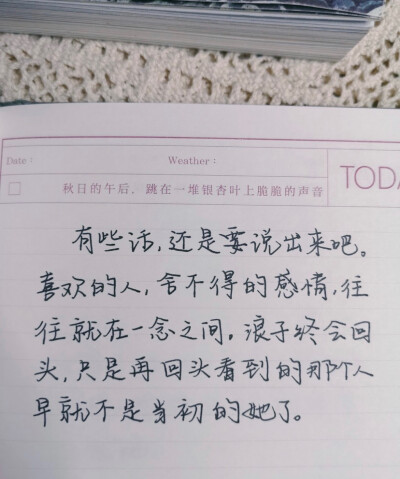 Date：
Weather：
TODA
秋日的午后，跳在一堆银杏叶上脆脆的声音
有些话,还是要说出来吧。
喜欢的人,舍不得的感情,往
往就在一念之间。浪子终会回
头,只是再回头看到的那个人
早就不是当初的她了。